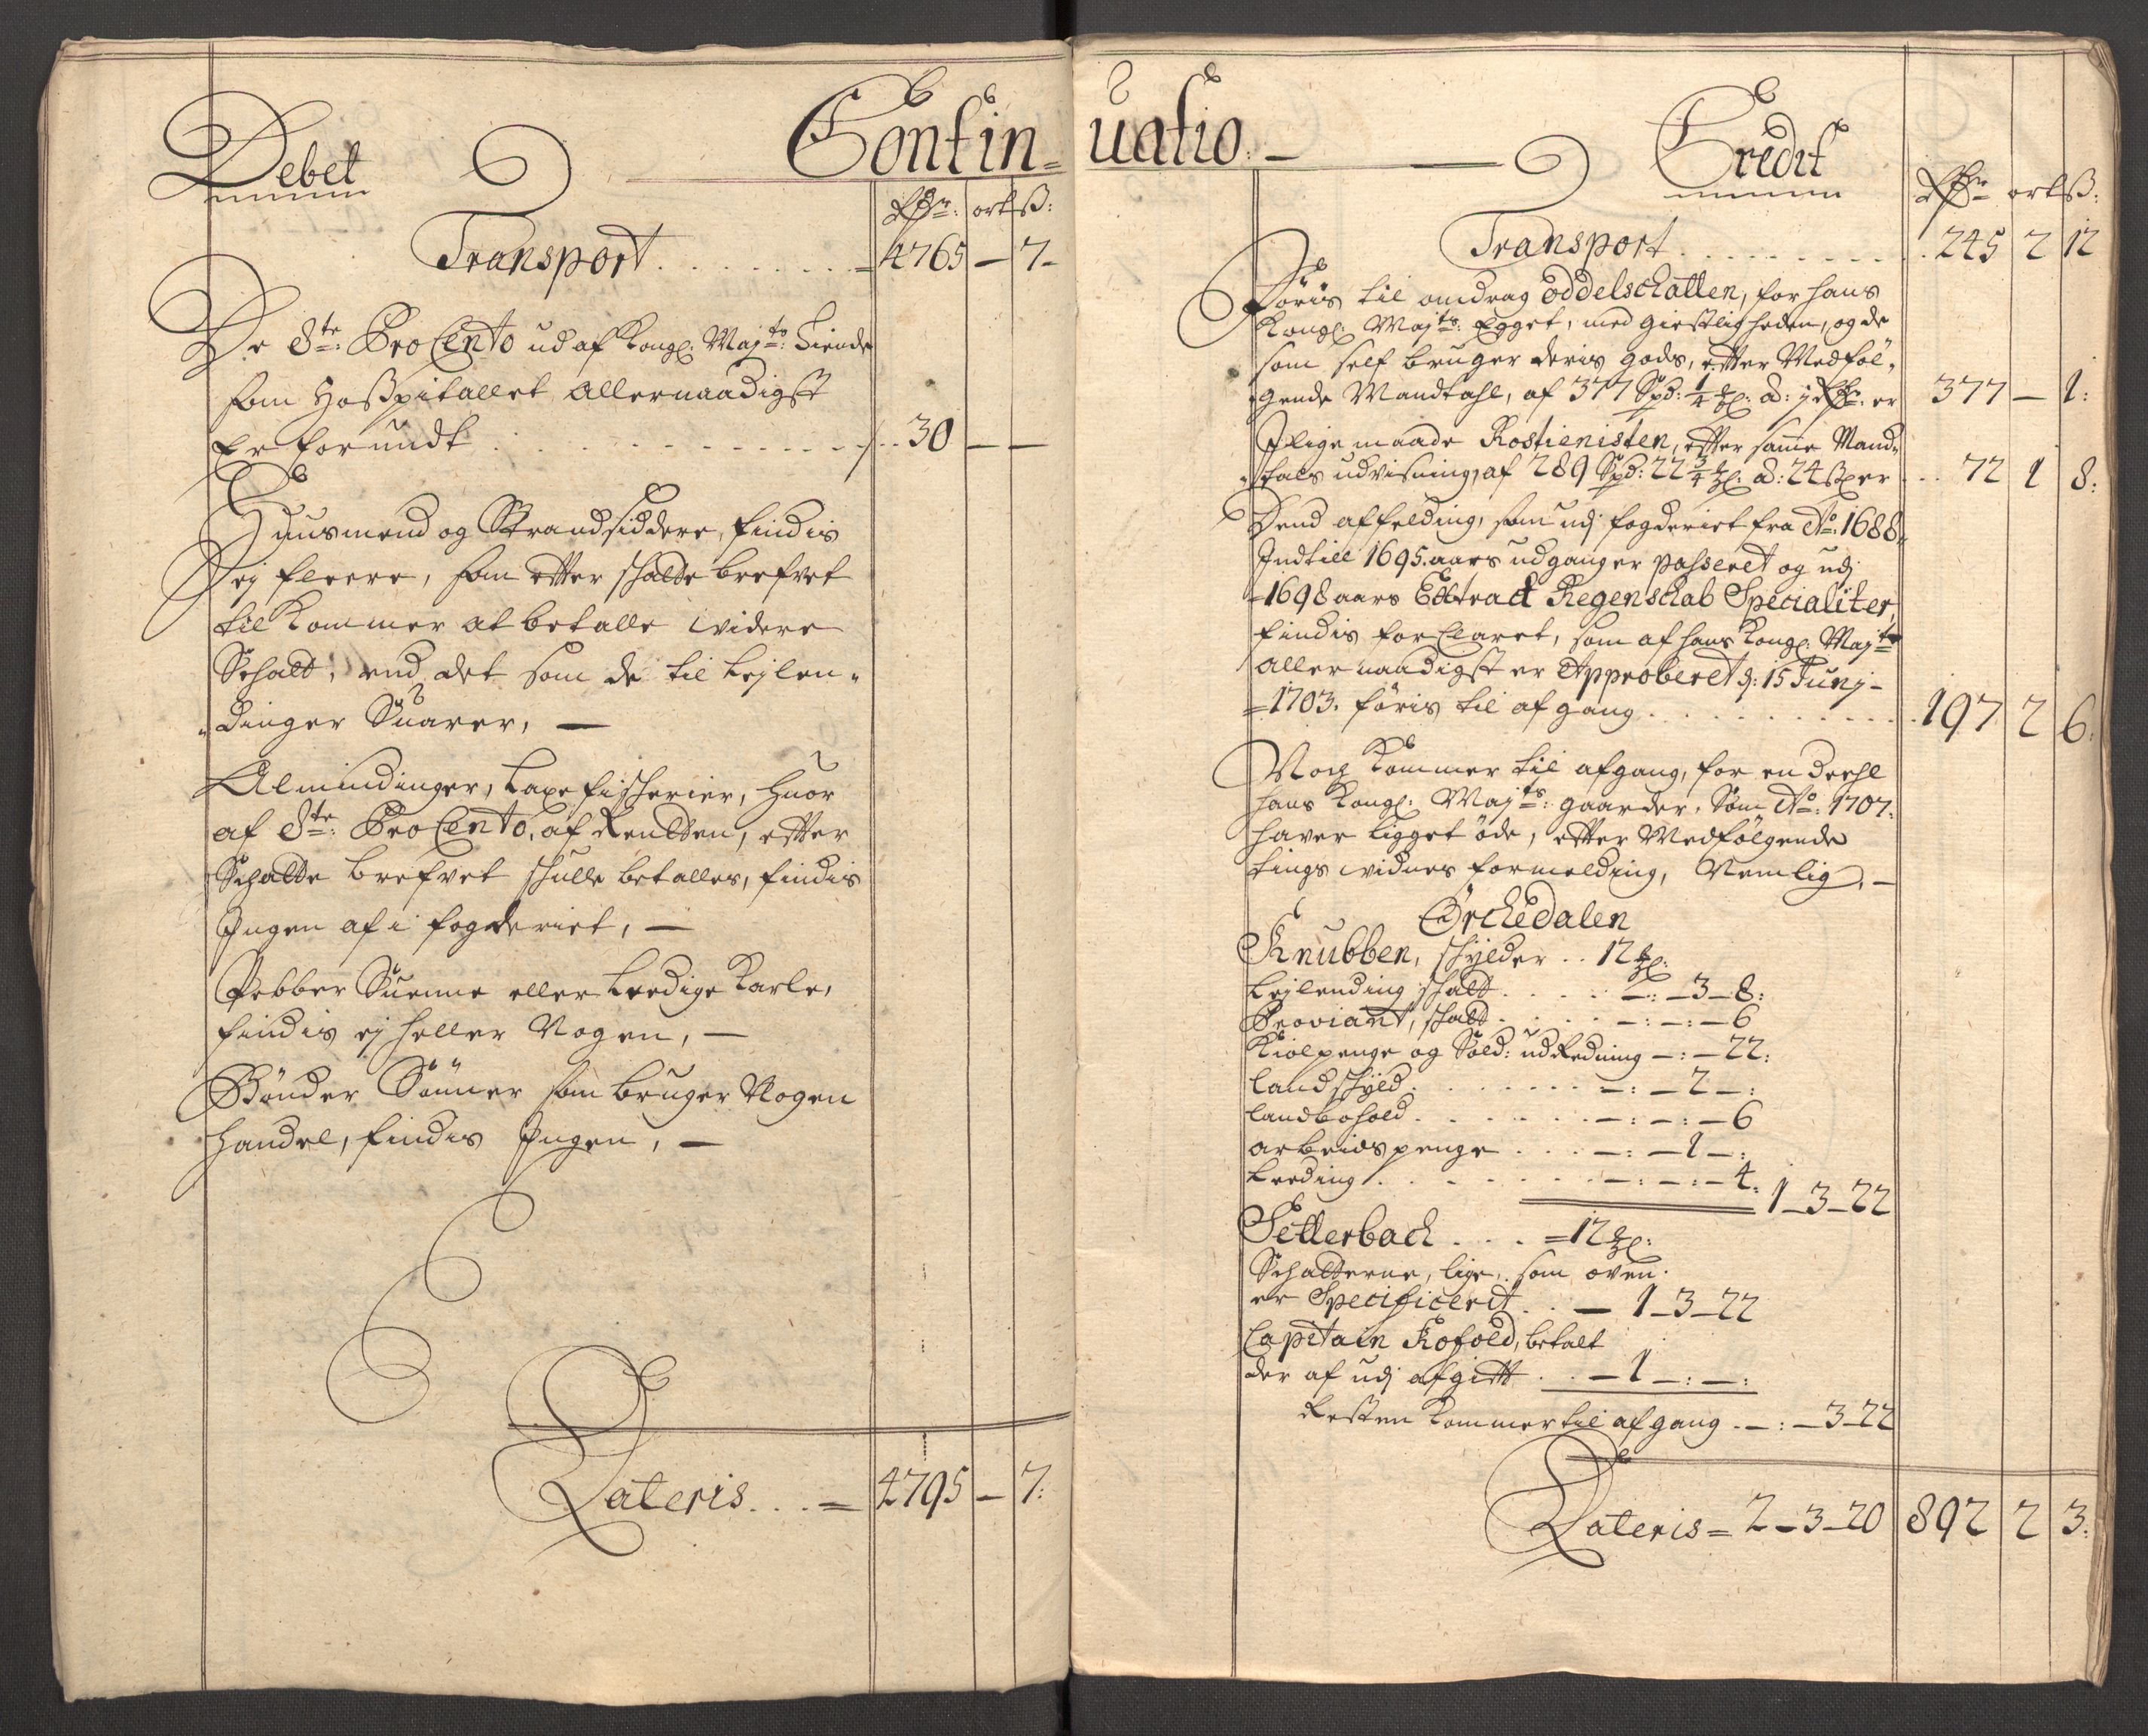 Debet
Contin=
Rdr: ort ß:
Transport . . . . . . . . = 4765 — 7 –
De 8te: Pro Cento ud af Kongl: Majts: Tiende
som Hosspitallet Allernaadigst
Er forundt . . . . . . . 30 — —
Huusmend og Strandsiddere, findis
Ej fleere, som effter schatte brefvet
til Kommer at betalle widere
Schatt, end det som de til Lejlen-
-dinger Suarer, —
Almindinger, Laxefischerier, Huor
af 8te: Pro Cento, af Rentten, effter
Schatte brefvet schulle betalles, findis
Ingen af i fogderiet, —
Pebber Suenne eller Leedige Karle,
findis ej heller Nogen, —
Bønder Sønner som bruger Nogen
handel, findis Ingen, —
Lateris . . . = 4795 — 7:
uatio. —
Credit
Rdr ort ß:
Transport . . . . . . . . . . 245 2 12
Føris til omdrag Oddelschatten, for hans
Kongl: Majts: Egget, med Giestligheden, og de
som self bruger deris gods, effter Medføl-
-gende Mandtahl, af 377 Spd: 1/4 #l: a: j Rdr: er 377 — 1:
Jlige maade Rostienisten, effter samme Mand-
-tals udvisning, af 289 Spd: 22 3/4 #l: a: 24 ß er . . 72 1 8:
Dend affelding, som udj fogderiet fra Ao: 1688
Indtill 1695. aars udgang er passeret og udj
=1698 aars Extract Regenschab Specialiter,
findis forClaret, som af hans Kongl: Majts
allernaadigst er Approberet d: 15 Junj –
=1703. føris til afgang . . . . . . . . . . 197 2 6:
Noch Kommer til afgang, for en deehl
hans Kongl: Majts: gaarder, Som Ao: 1707.
haver ligget øde, effter Medfølgende
tings widnes formelding, Nemlig, —
Ørchedalen
Knubben, schylder . . 12 #l:
Lejlending schatt . . . . — : — 3 — 8:
Proviant, schatt . . . . — : — : — 6
Kiolpenge og Sold: udRedning — : — 22:
Landschyld . . . . . . . — : — 2 — :
Landbohold . . . . . . — : — : — 6
arbeidspenge . . . — : — 1 — :
Leeding . . . . . . . — : — : — 4: 1 — 3 — 22
Setterbach . . . = 12 #l:
Schatterne, lige som oven
er Specificerit . . — 1 — 3 — 22
Capitain Kofoed, betalt
der af udj afgifft . . — 1 — : — :
Resten Kommer til afgang . — : — 3 — 22
Lateris = 2 — 3 — 20 892 2 3: